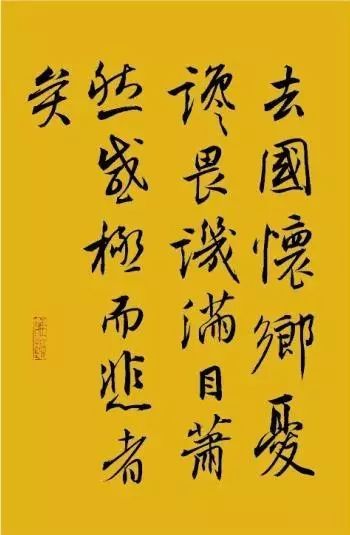 去國懷鄉憂
讒畏譏滿目蕭
然感極而悲者
矣